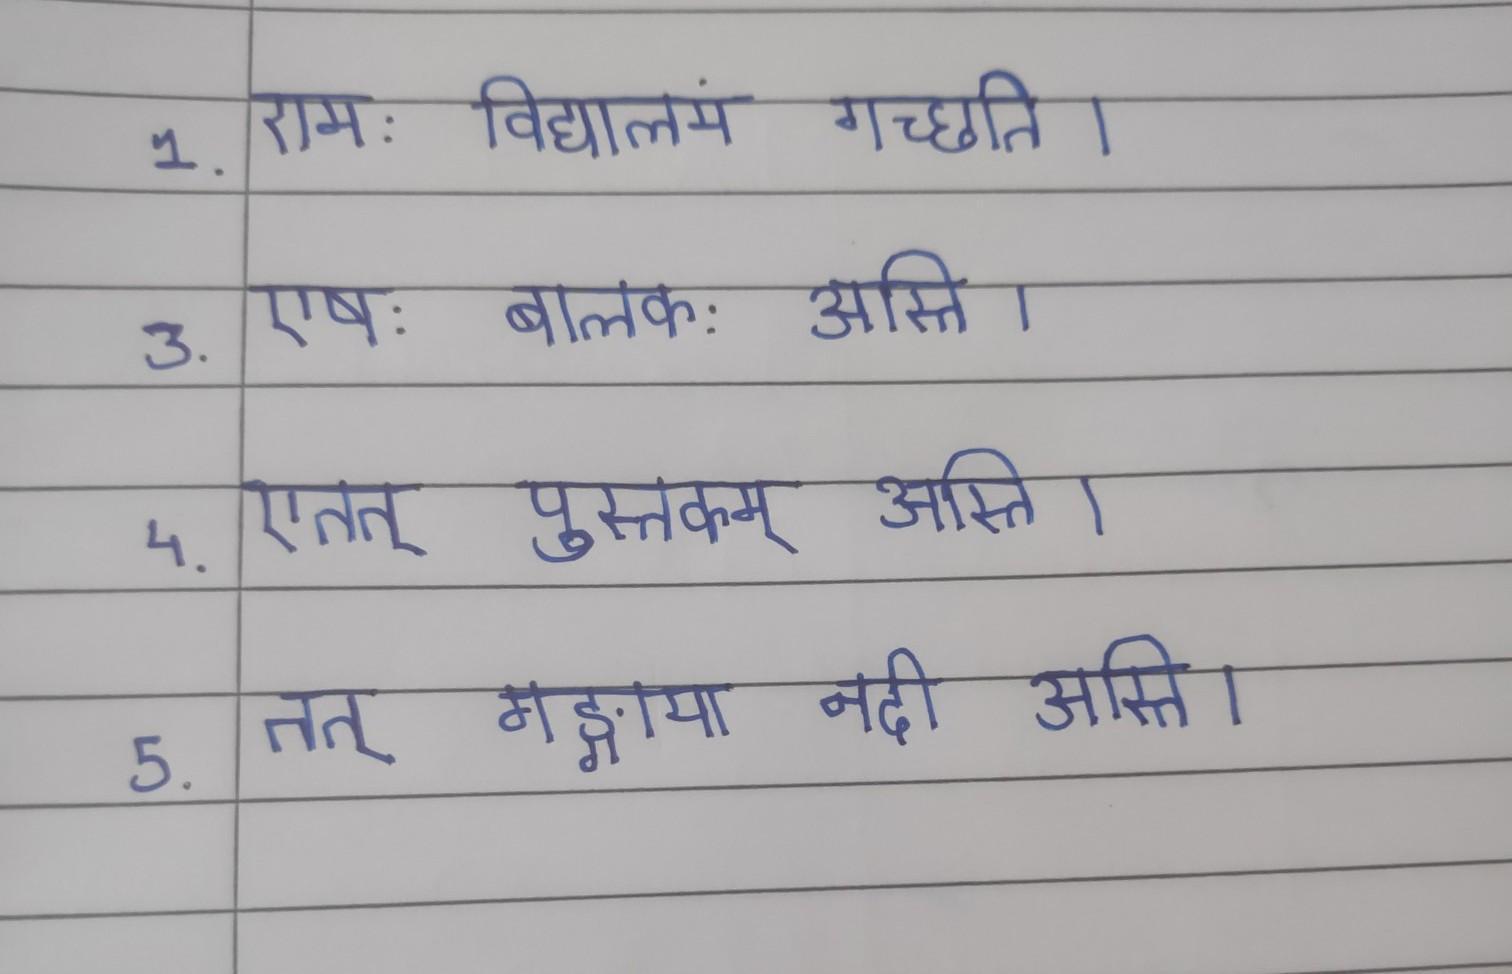 1. रामः विद्यालयं गच्छति ।
3. एषः बालकः अस्ति ।
4. एतत् पुस्तकम् अस्ति ।
5. तत् गङ्गाया नदी अस्ति ।